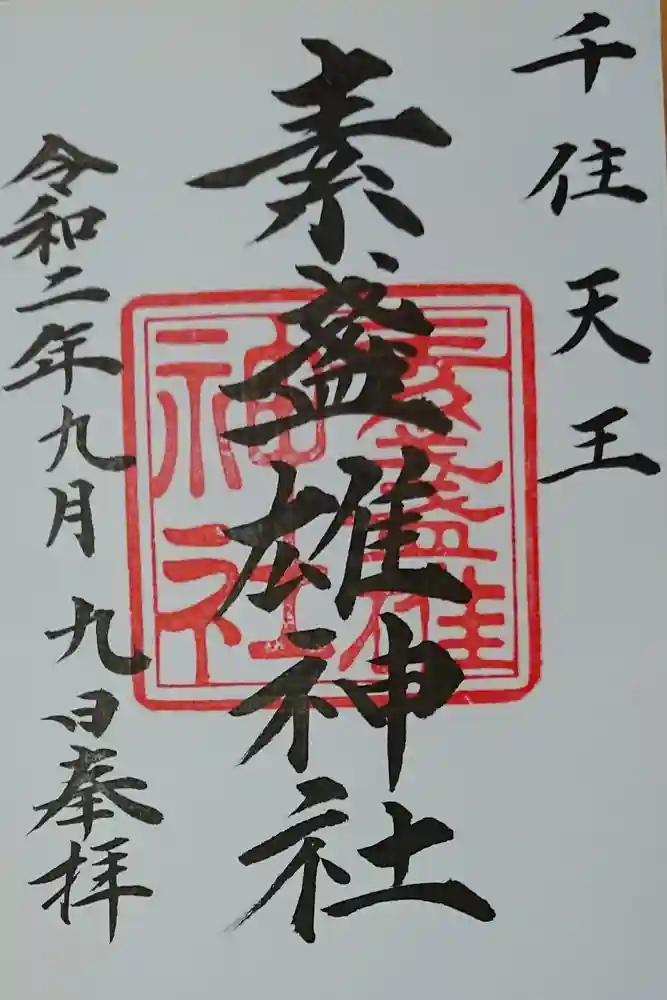 千住天王
素盞雄神社
素盞雄
神社
令和二年九月九日奉拝